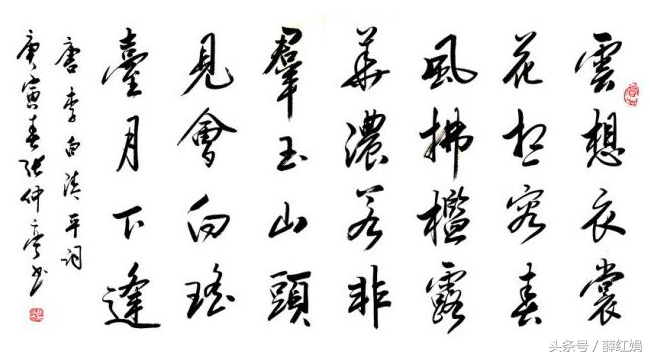 雲想衣裳
花想容春
風拂檻露
華濃若非
羣玉山頭
見會向瑤
臺月下逢
唐李白清平词
庚寅春张仲亭书
头条号 / 薛红娟